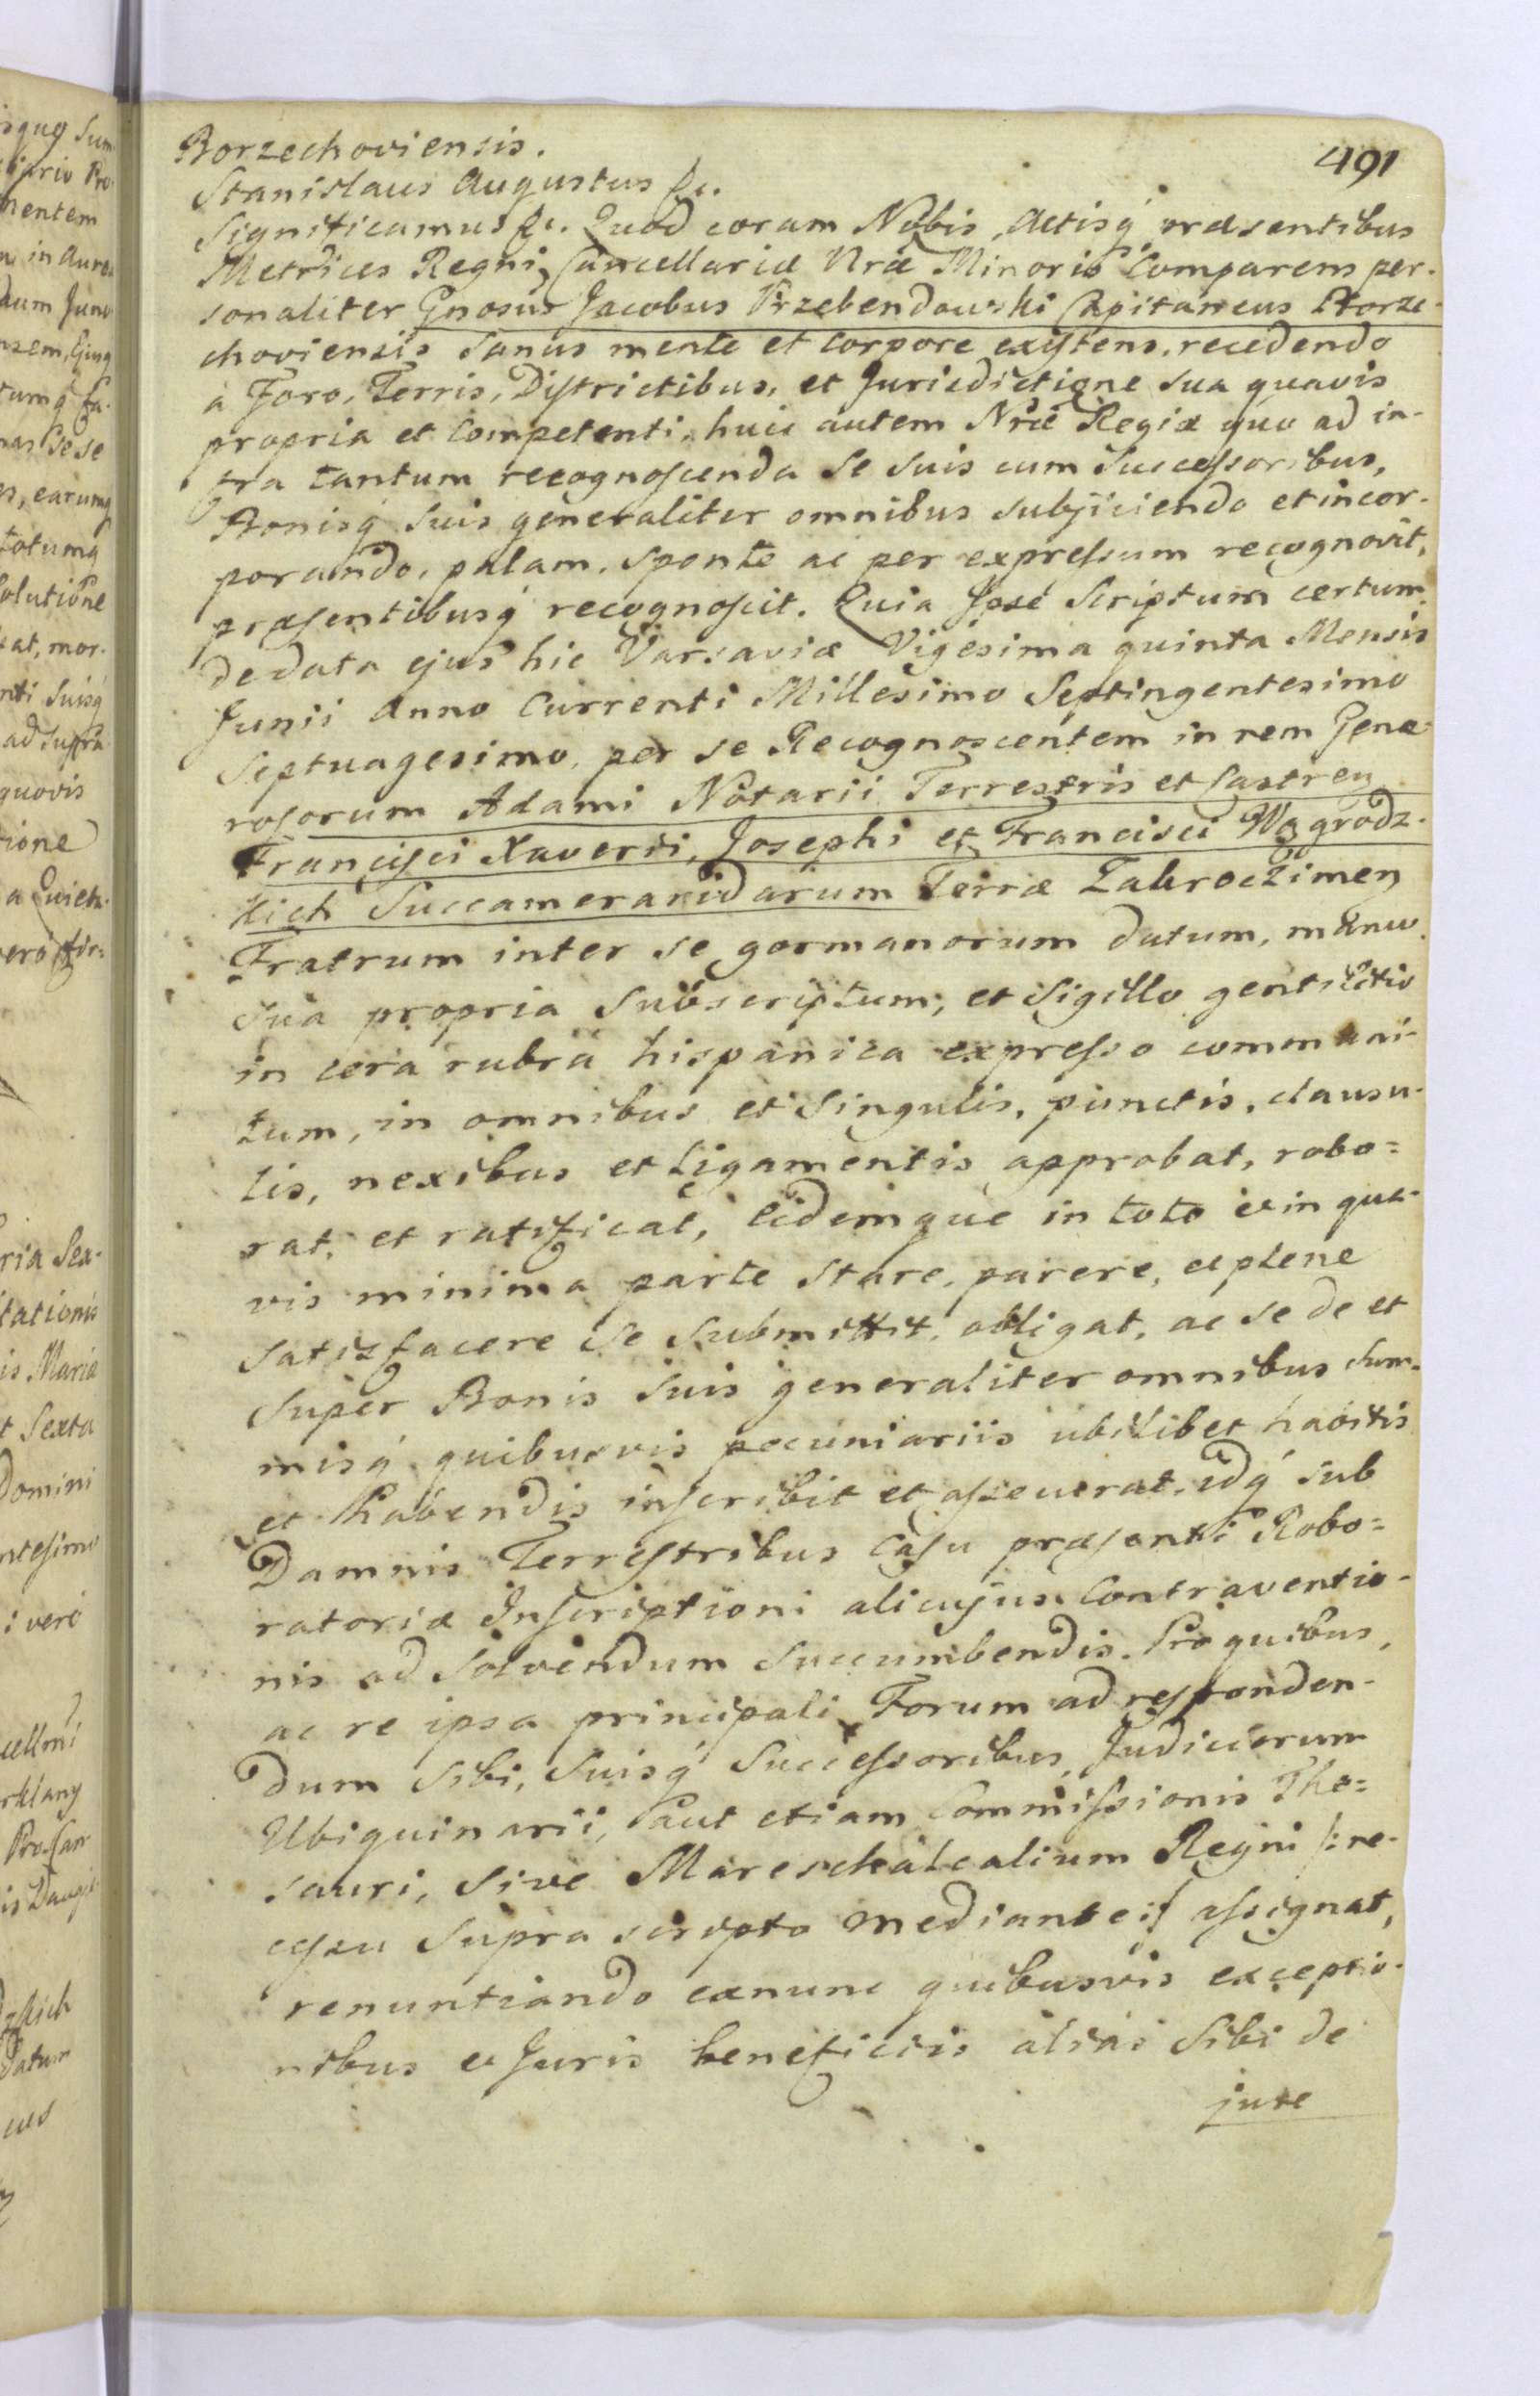 491
Borzechoviensis.
Stanislaus Augustus &c.
Significamus &c. Quod coram Nobis, Actisq́ præsentibus
Metrices Regni, Cancellariæ Nræ Minoris Comparens per-
sonaliter Gnosus Jacobus Przebendowski Capitaneus Borze-
choviensis sanus mente et corpore existens, recedendo
a Foro, Terris, Districtibus, et Jurisdictione sua quavis
propria et competenti, huic autem Nræ Regiæ quo ad in-
fra tantum recognoscenda se suis cum Successoribus,
Bonisq́ suis generaliter omnibus subjiciendo et incor-
porando, palam, sponte ac per expressum recognovit,
præsentibusq́ recognoscit. Quia Ipse Scriptum certum
de data ejus hic Varsaviæ Vigesima quinta Mensis
Junii Anno Currenti Millesimo Septingentesimo
Septuagesimo, per se Recognoscentem in rem Gene-
rosorum Adami Notarii Terrestris et Castren
Francisci Xaverii, Josephi et Francisci Wągrodz-
kich Succameraridarum Terræ Zakroczimen
Fratrum inter se germanorum datum, manu
sua propria subscriptum, et Sigillo gentilitio
in cera rubra hispanica expresso communi-
tum, in omnibus et singulis, punctis, clausu-
lis, nexibus et ligamentis approbat, robo=
rat, et ratificat, eidemque in toto et in qua-
vis minima parte stare, parere, et plene
satisfacere se submittit, obligat, ac se de et
super Bonis suis generaliter omnibus sum-
misq́ quibusvis pecuniariis ubilibet habitis
et habendis inscribit et asseverat, idq́ sub
Damnis Terrestribus casu præsenti Robo=
ratoriæ Inscriptioni alicujus Contraventio-
nis ad solvendum succumbendis. Pro quibus,
ac re ipsa principali Forum ad responden-
dum sibi, suisq́ Successoribus, Judiciorum
Ubiquinarii, aut etiam Commissionis The=
sauri, sive Mareschalcalium Regni /: re-
cessu supra scripto mediante :/ assignat,
renuntiando exnunc quibusvis exceptio-
nibus et Juris beneficiis alias sibi de
jure